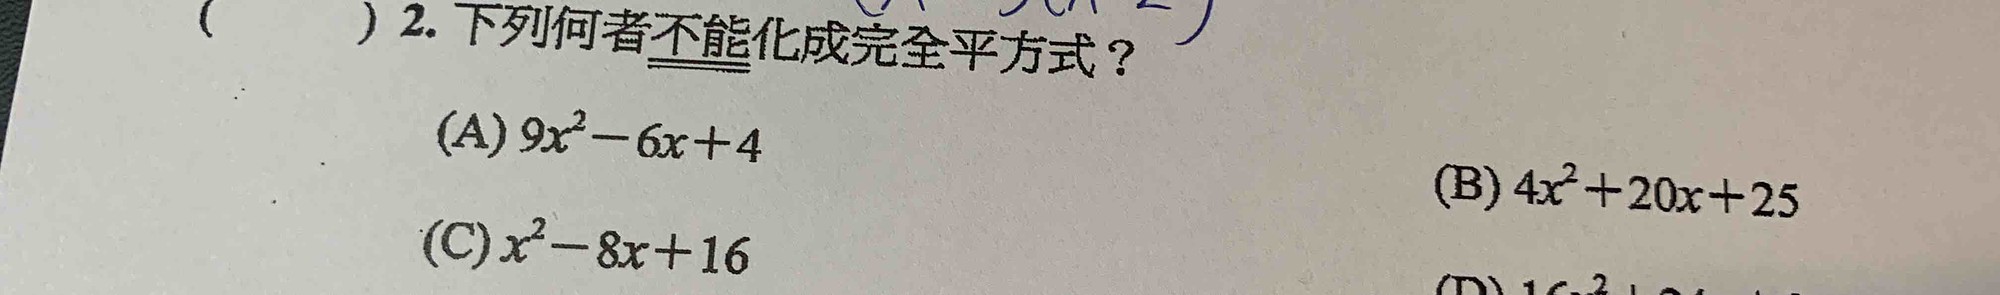 (  ) 2. 下列何者不能化成完全平方式？
(A) 9x²－6x＋4
(B) 4x²＋20x＋25
(C) x²－8x＋16
(D)